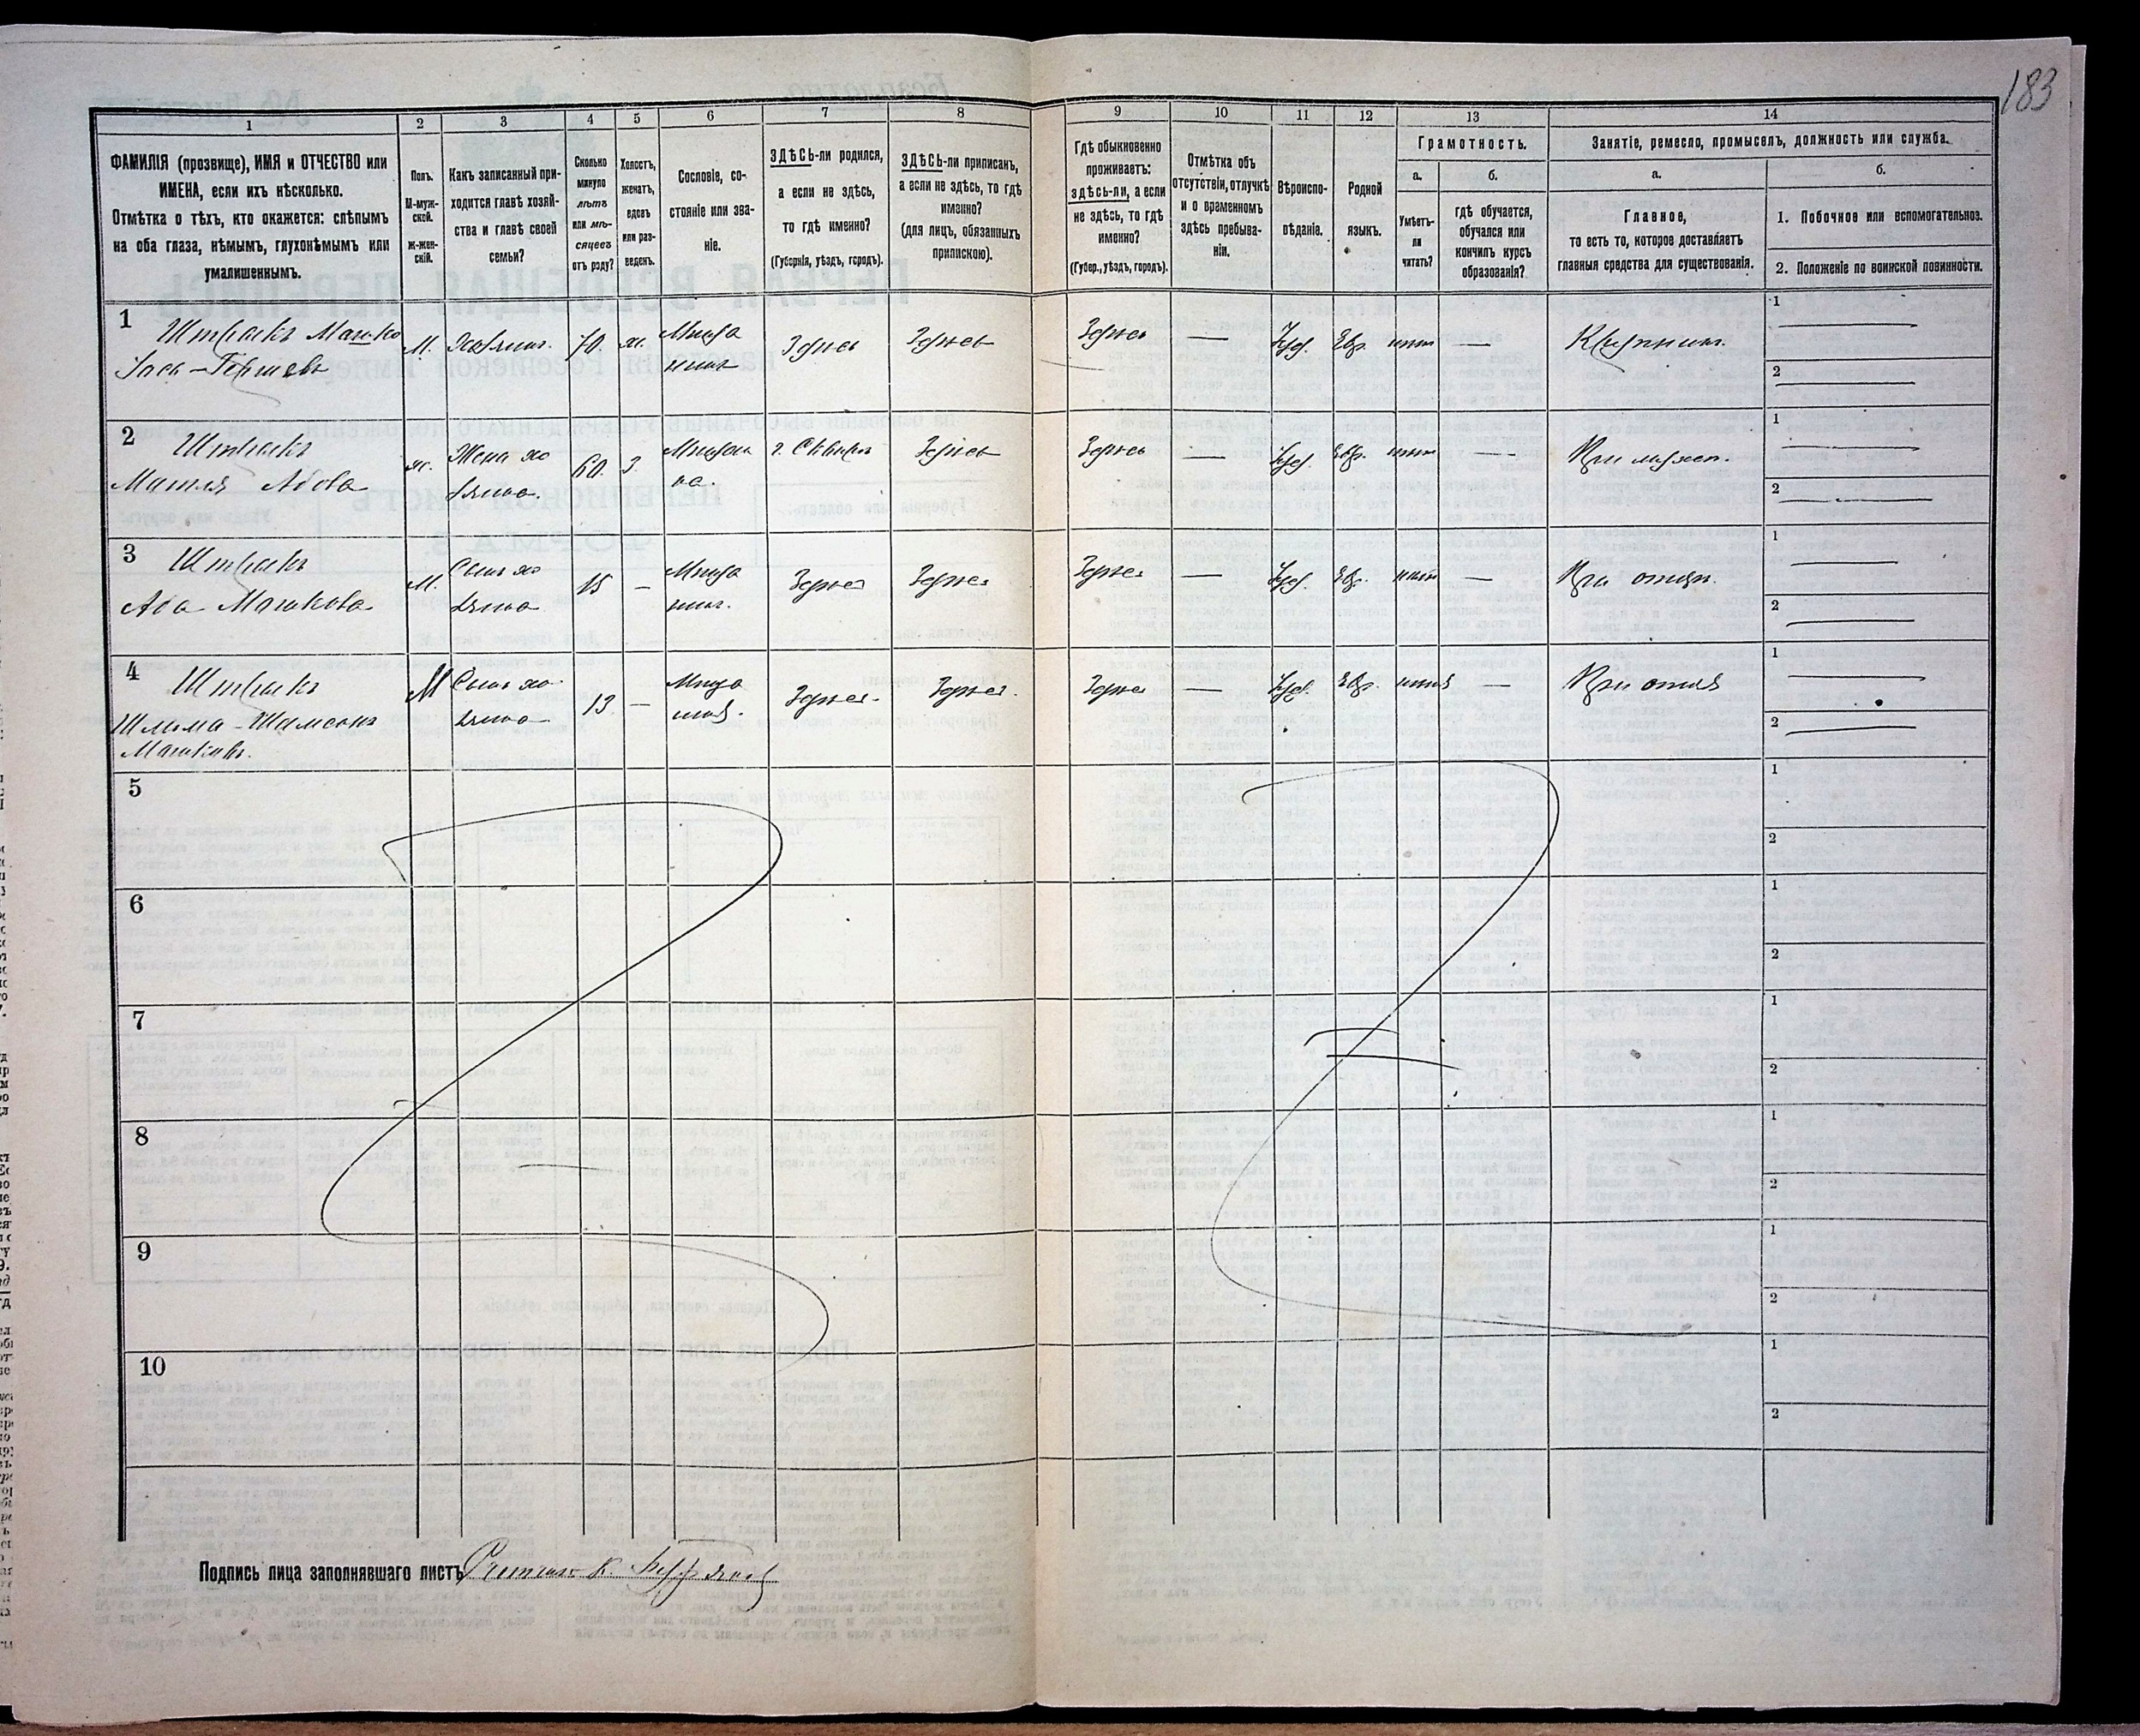 183
1
2
3
4
5
6
7
8
9
10
11
12
13
14
ФАМИЛІЯ (прозвище), ИМЯ и ОТЧЕСТВО или
ИМЕНА, если ихъ нѣсколько.
Отмѣтка о тѣхъ, кто окажется: слѣпымъ
на оба глаза, нѣмымъ, глухонѣмымъ или
умалишеннымъ.
Полъ.
М-муж-
ской.
Ж-жен-
скій.
Какъ записанный при-
ходится главѣ хозяй-
ства и главѣ своей
семьи?
Сколько
минуло
лѣтъ
или мѣ-
сяцевъ
отъ роду?
Холостъ,
женатъ,
вдовъ
или раз-
веденъ.
Сословіе, со-
стояніе или зва-
ніе.
ЗДѢСЬ-ли родился,
а если не здѣсь,
то гдѣ именно?
(Губернія, уѣздъ, городъ).
ЗДѢСЬ-ли приписанъ,
а если не здѣсь, то гдѣ
именно?
(для лицъ, обязанныхъ
припискою).
Гдѣ обыкновенно
проживаетъ:
здѣсь-ли, а если
не здѣсь, то гдѣ
именно?
(Губер., уѣздъ, городъ).
Отмѣтка объ
отсутствіи, отлучкѣ
и о временномъ
здѣсь пребыва-
ніи.
Вѣроиспо-
вѣданіе.
Родной
языкъ.
Грамотность.
а.
б.
Умѣетъ-
ли
читать?
гдѣ обучается,
обучался или
кончилъ курсъ
образованія?
Занятіе, ремесло, промыселъ, должность или служба.
а.
б.
Главное,
то есть то, которое доставляетъ
главныя средства для существованія.
1. Побочное или вспомогательное.
2. Положеніе по воинской повинности.
1
Штракъ Машко
Іось-Гершевъ
М.
Хозяинъ.
70.
ж.
Мѣща
нинъ
Здѣсь
Здѣсь
Здѣсь
—
Іуд.
Евр.
нѣтъ
—
1
2
2
Штракъ
Матля Абова
ж.
Жена хо
зяина.
60.
з.
Мѣщан
ка.
г. Сквира
Здѣсь
Здѣсь
—
Іуд.
Евр.
нѣтъ
—
При мужѣ.
1
2
3
Штракъ
Аба Машковъ
М.
Сынъ хо
зяина
15
—
Мѣща
нинъ.
Здѣсь
Здѣсь
Здѣсь
—
Іуд.
Евр.
нѣтъ
—
При отцѣ.
1
2
4
Штракъ
Шлема-Шамсонъ
Машковъ.
М
Сынъ хо
зяина
13
—
Мѣща
нинъ.
Здѣсь.
Здѣсь.
Здѣсь
—
Іуд.
Евр.
нѣтъ
—
При отцѣ
1
2
5
1
2
6
1
2
7
1
2
8
1
2
9
1
2
10
1
2
Подпись лица заполнявшаго листъ Счетчикъ К.